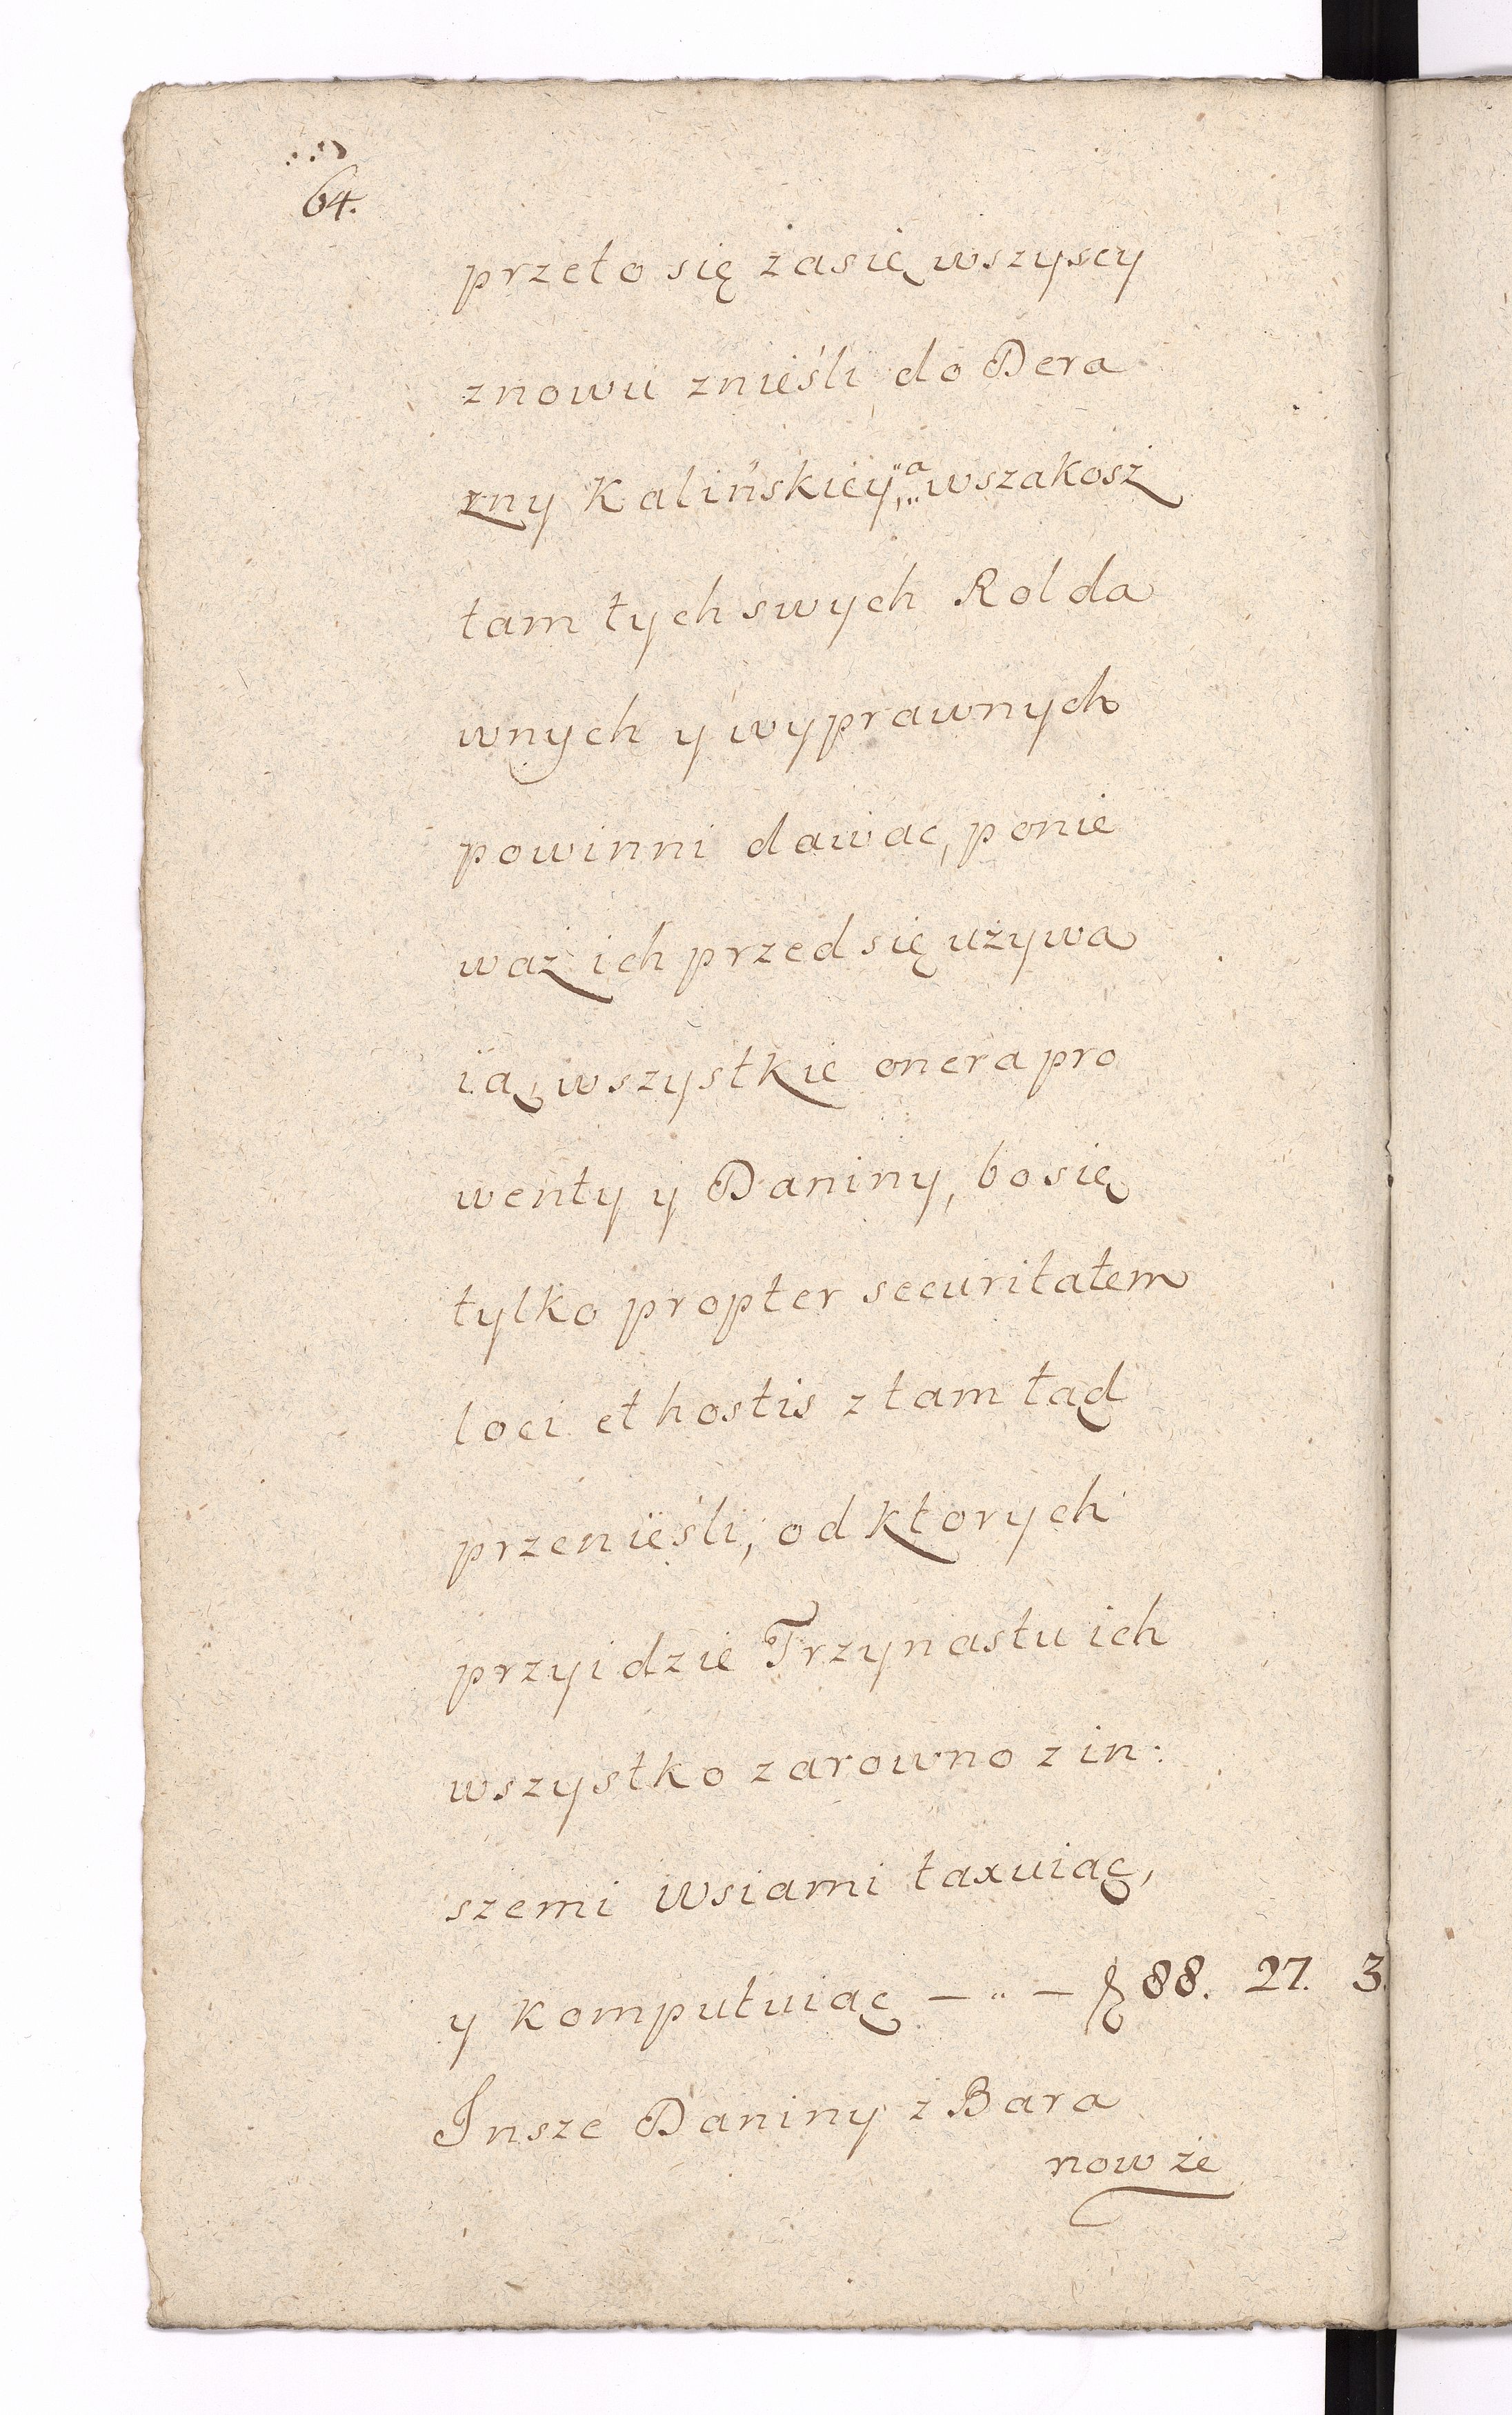 64.
przeto się zasię wszyscy
znowu znieśli do Dera
zny Kalińskiey, a wszakosz
tam tych swych Rol da
wnych y wyprawnych
powinni dawac, ponie
waz ich przed się używa
ią, wszystkie onera pro
wenty y Daniny, bo się
tylko propter securitatem
loci et hostis z tam tąd
przenieśli, od ktorych
przyidzie Trzynastu ich
wszystko zarowno z in:
szemi wsiami taxuiąc,
y komputuiąc — „ — 88. 27. 3.
Insze Daniny z Bara
now ze